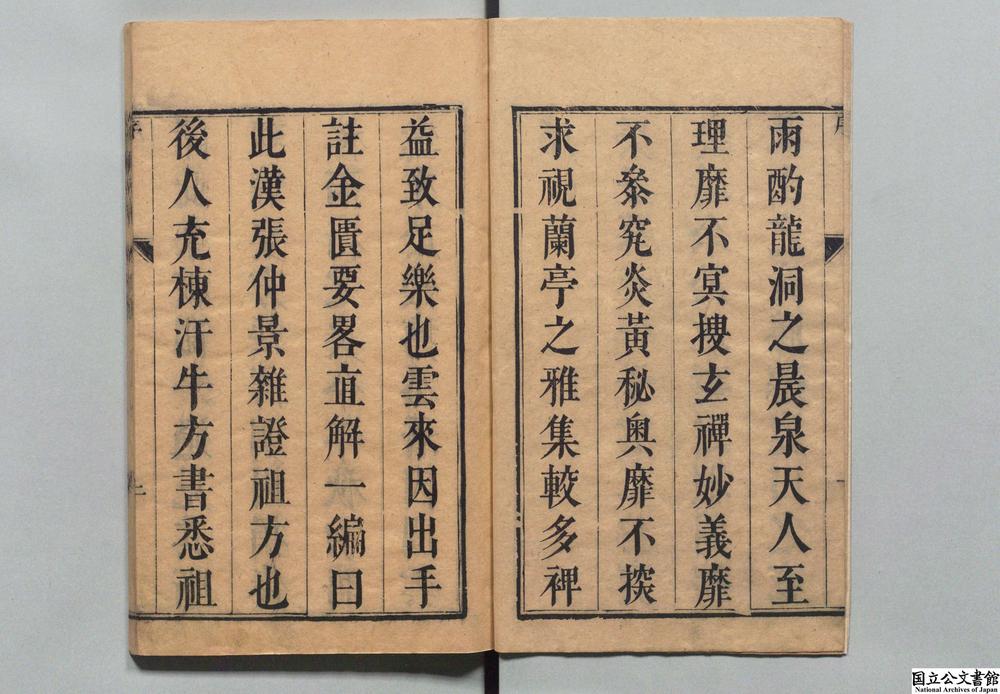 雨酌龍洞之晨泉天人至
理靡不冥搜玄禪妙義靡
不叅究炎黃秘奥靡不揬
求視蘭亭之雅集較多裨
益致足樂也雲來因出手
註金匱要畧直解一編曰
此漢張仲景雜證祖方也
後人充棟汗牛方書悉祖
序
上
国立公文書館
National Archives of Japan